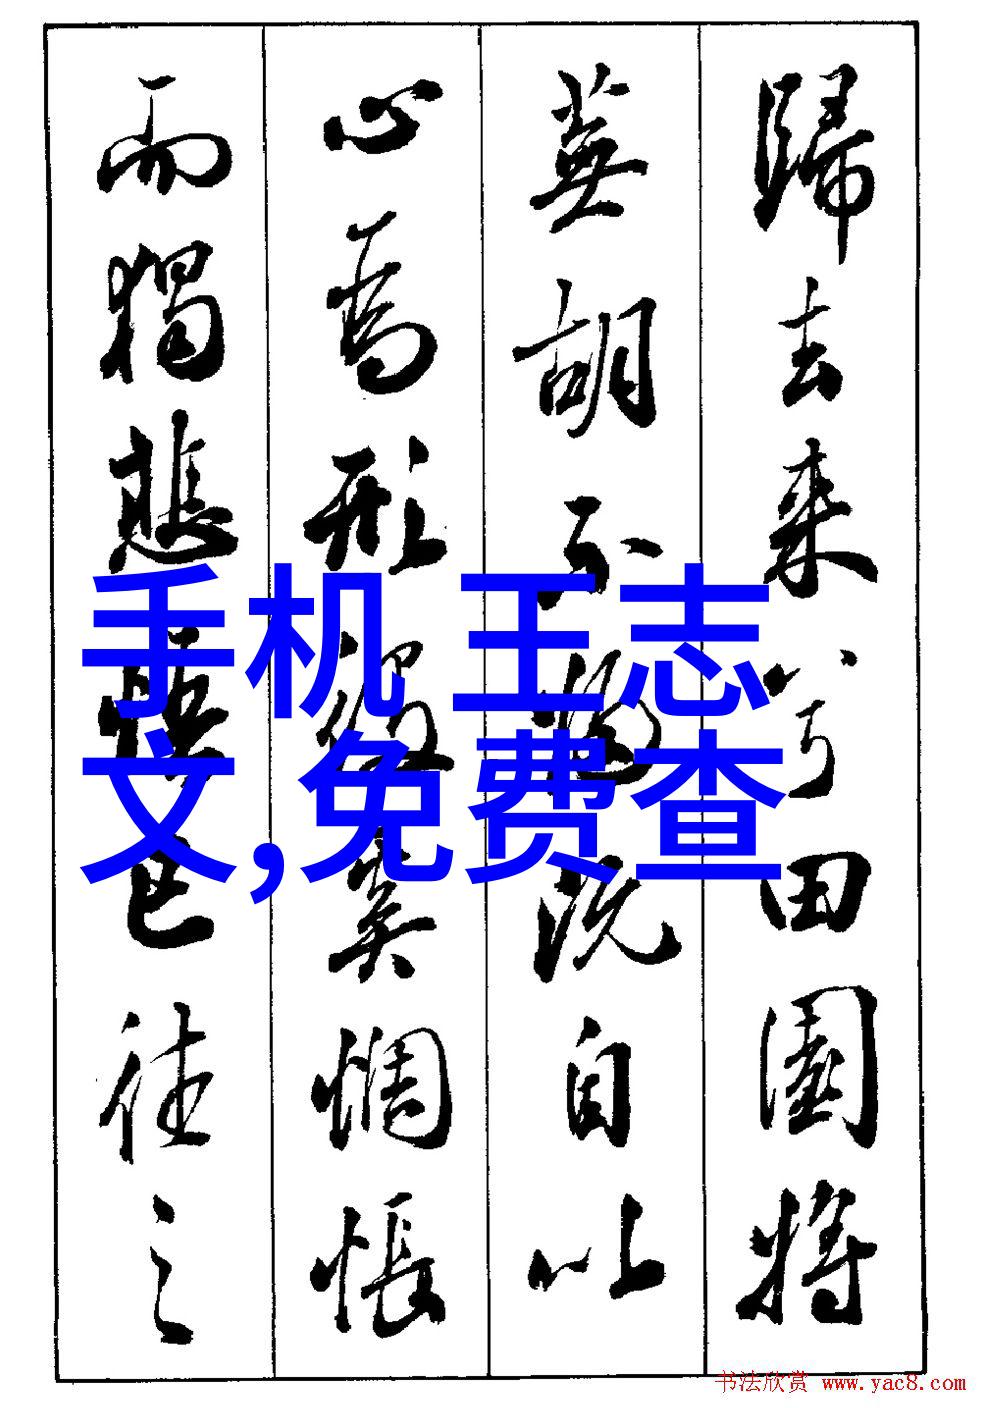 歸去来兮田園将
蕪胡不歸既自以
心為形役奚惆悵
而獨悲悟已往之
手机 王志
文,免费查
书法欣赏 www.yac8.com